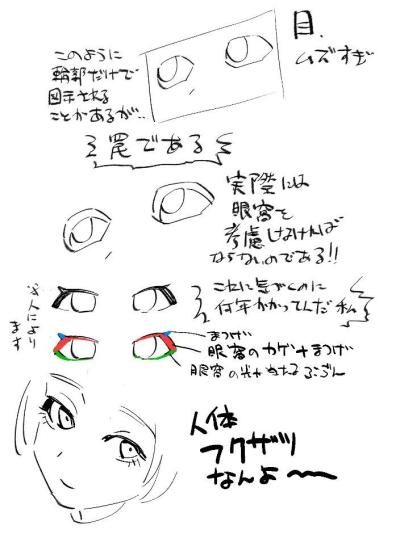 目、
ムズすぎ
このように
輪郭だけで
図示される
ことがあるが..
罠である
実際には
眼窩を
考慮しなければ
ならないのである!!
これに気がつくのに
何年かかってんだ私
人により
ます
まつげ
眼窩のカゲ+まつげ
眼窩の光が当たるぶぶん
人体
フクザツ
なんよ〜